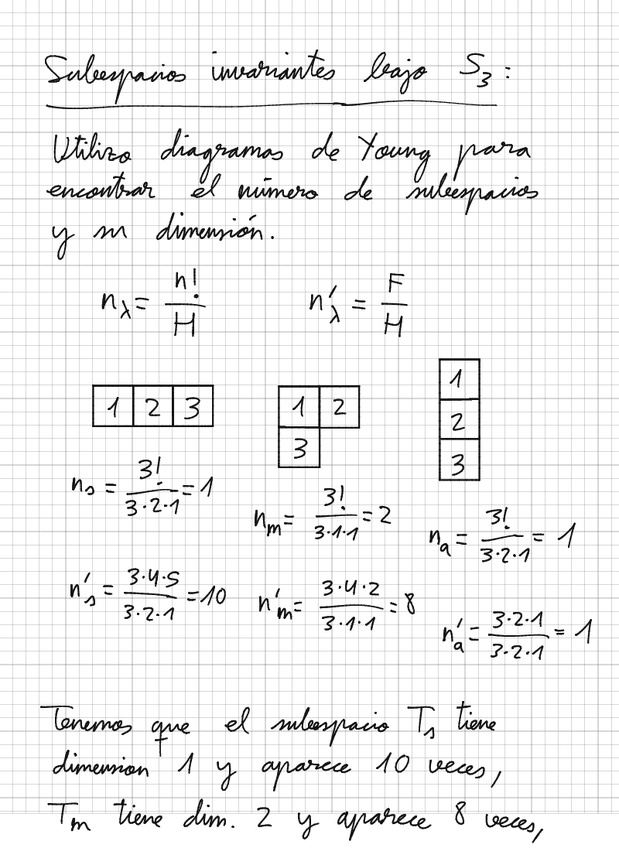 Subespacios invariantes bajo S₃:
Utilizo diagramas de Young para
encontrar el número de subespacios
y su dimensión.
n_λ = n!/H n'_λ = F/H
1 2 3
1 2
3
1
2
3
n_s = 3!/(3·2·1) = 1
n_m = 3!/(3·1·1) = 2
n_a = 3!/(3·2·1) = 1
n'_s = (3·4·5)/(3·2·1) = 10
n'_m = (3·4·2)/(3·1·1) = 8
n'_a = (3·2·1)/(3·2·1) = 1
Tenemos que el subespacio T_s tiene
dimension 1 y aparece 10 veces,
T_m tiene dim. 2 y aparece 8 veces,